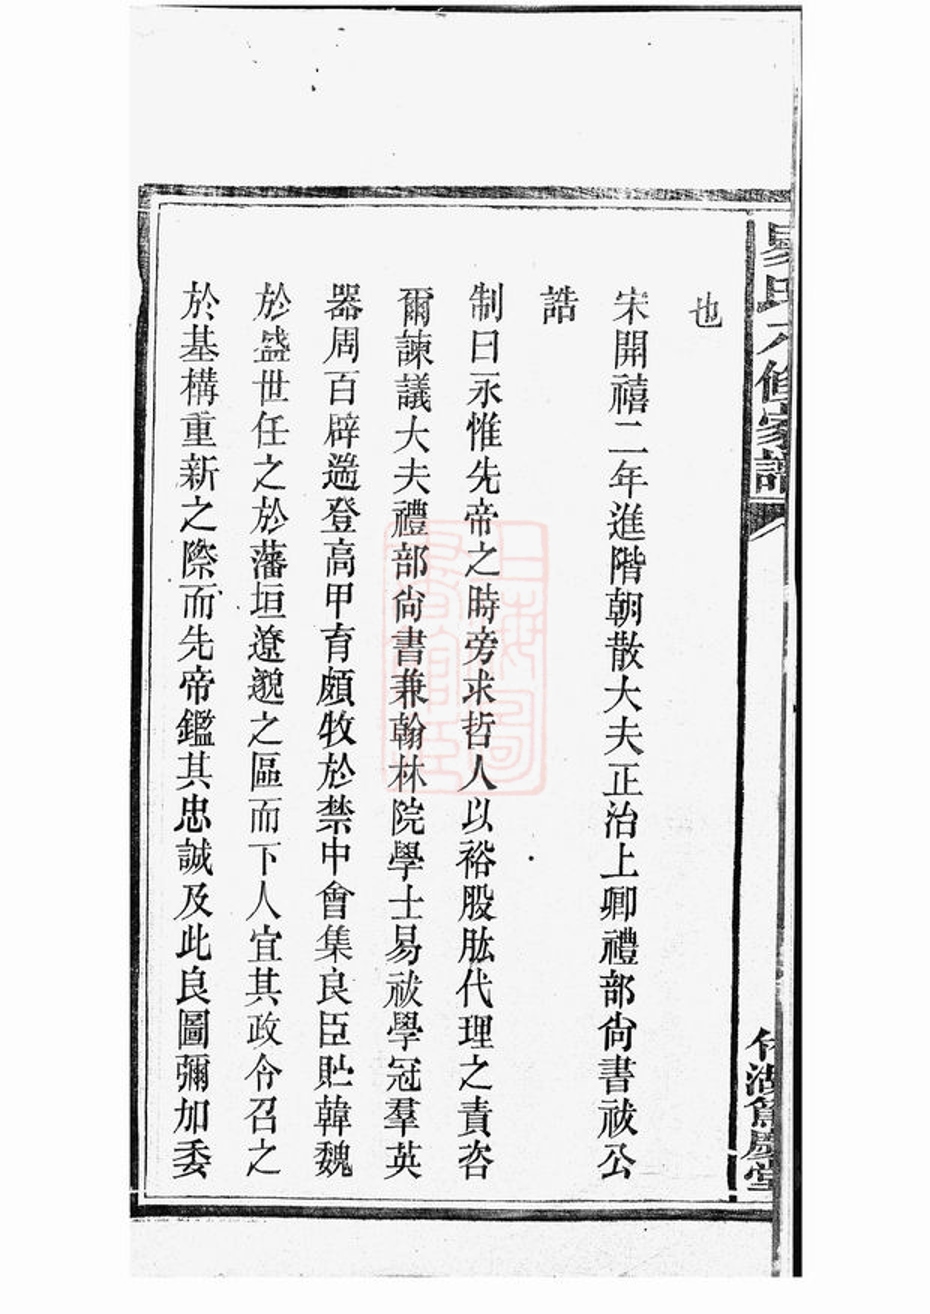 易氏六修家譜
竹湖篤慶堂
也
宋開禧二年進階朝散大夫正治上卿禮部尙書祓公
誥
制曰永惟先帝之時旁求哲人以裕股肱代理之責咨
爾諫議大夫禮部尙書兼翰林院學士易祓學冠羣英
器周百辟遄登高甲育頗牧於禁中會集良臣貯韓魏
於盛世任之於藩垣遼邈之區而下人宜其政令召之
於基構重新之際而先帝鑑其忠誠及此良圖彌加委